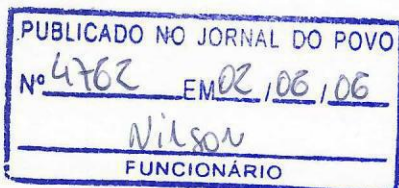 PUBLICADO NO JORNAL DO POVO
Nº 4762 EM 02 / 06 / 06
Nilson
FUNCIONÁRIO